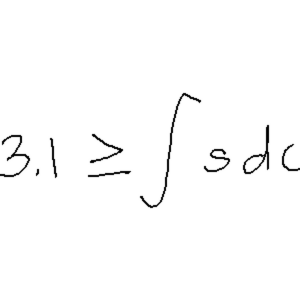 3.1 ≥ ∫ s d